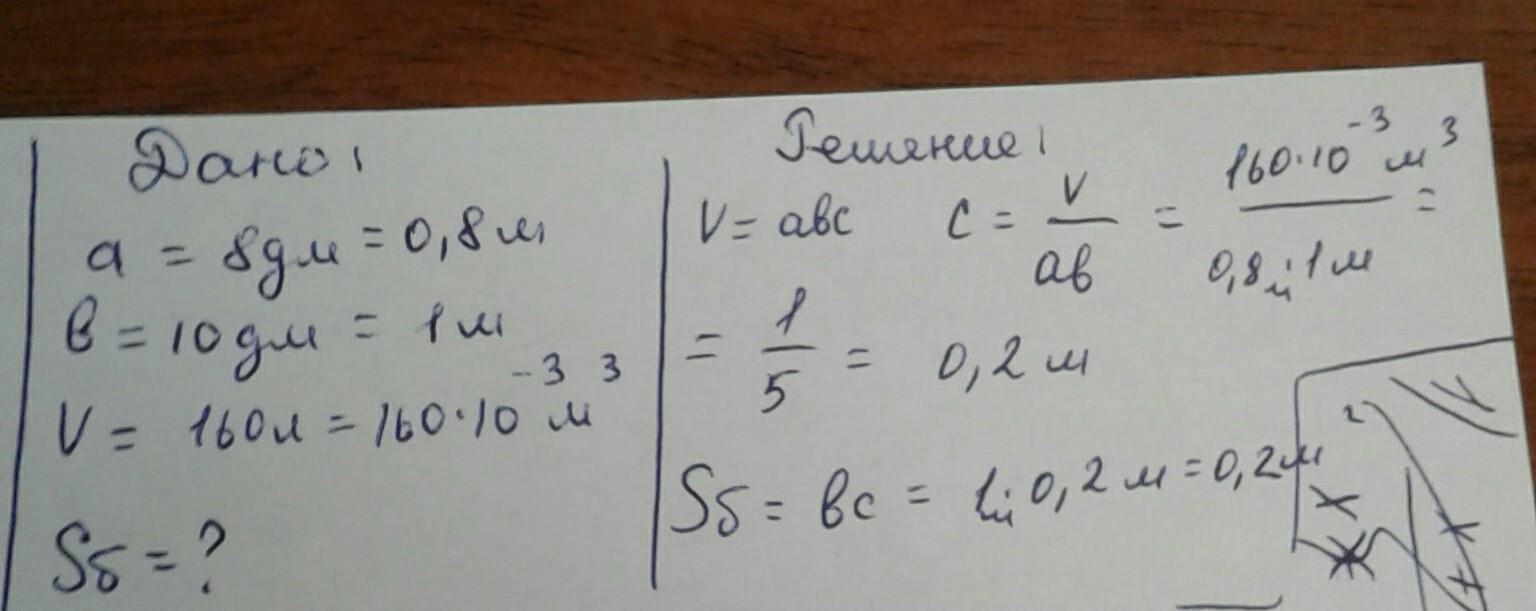 Дано:
a = 8дм = 0,8м
в = 10дм = 1м
V = 160л = 160·10⁻³ м³
Sб = ?
Решение:
V = aвc c = V/aв = 160·10⁻³ м³/0,8м·1м =
= 1/5 = 0,2 м
Sб = вc = 1м·0,2м = 0,2м²